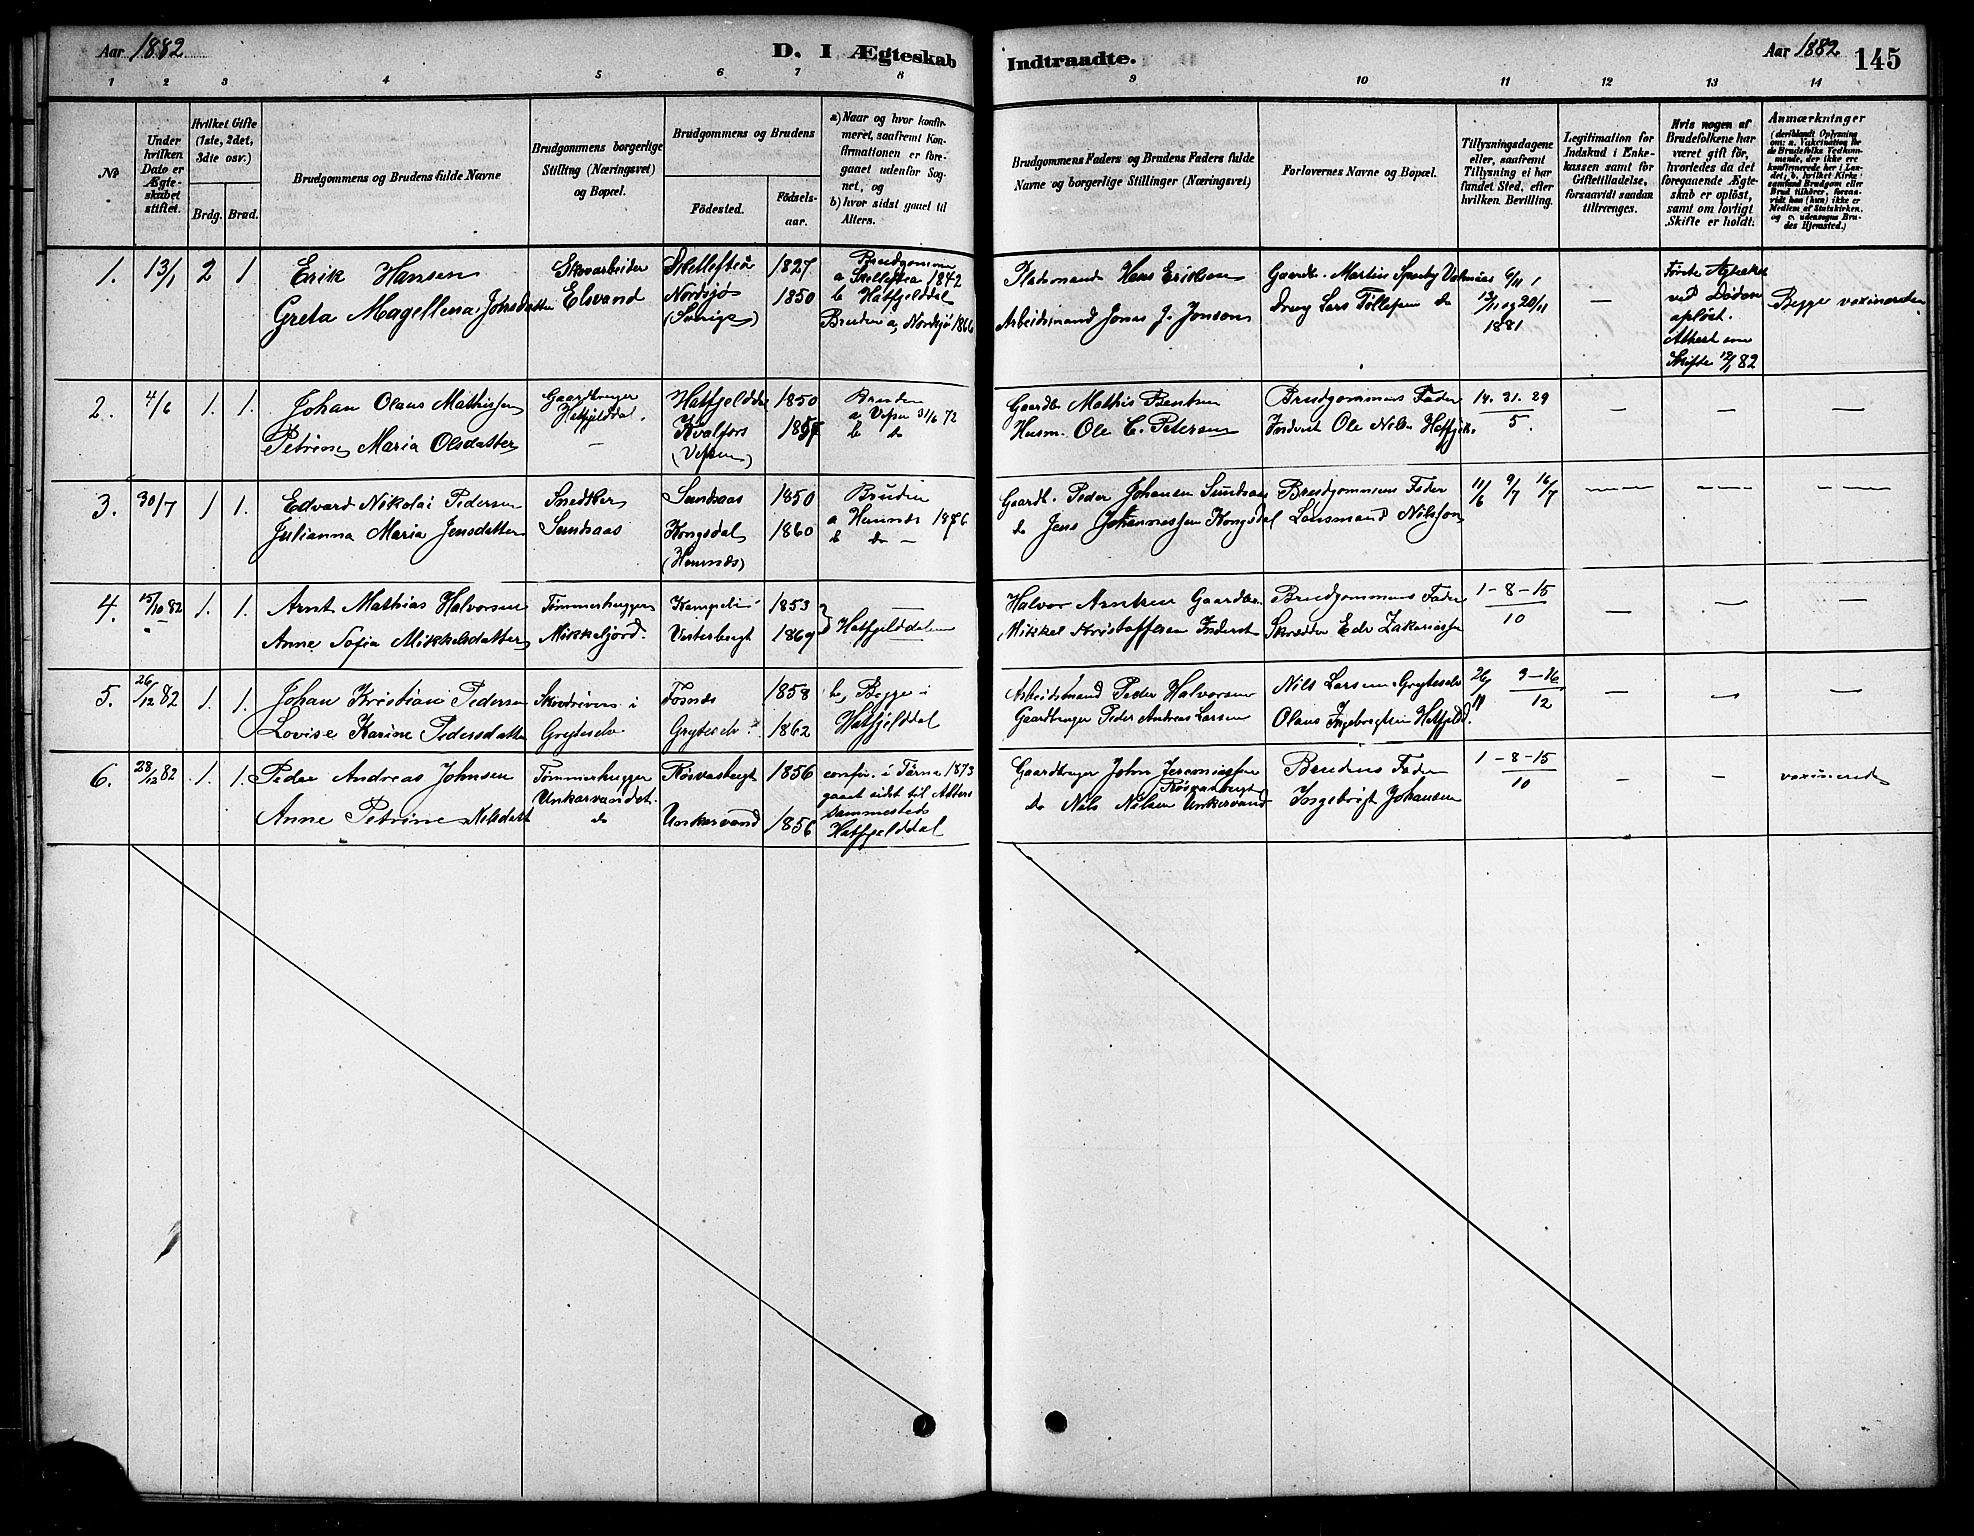 Aar 1882
D. I Ægteskab
Indtraadte.
Aar 1882
145
1 2 3 4 5 6 7 8 9 10 11 12 13 14
No
Under hvilken Dato er Ægteskabet stiftet.
Hvilket Gifte (1ste, 2det, 3die osv.)
Brdg. Brud.
Brudgommens og Brudens fulde Navne
Brudgommens borgerlige Stilling (Næringsvei) og Bopæl.
Brudgommens og Brudens
Fødested.
Fødselsaar.
a) Naar og hvor konfirmeret, saafremt Konfirmationen er foregaaet udenfor Sognet, og
b) hvor sidst gaaet til Alters.
Brudgommens Faders og Brudens Faders fulde Navne og borgerlige Stillinger (Næringsvei)
Forlovernes Navne og Bopæl.
Tillysningsdagene eller, saafremt Tillysning ei har fundet Sted, efter hvilken Bevilling.
Legitimation for Indskud i Enkekassen samt for Giftetilladelse, forsaavidt saadan tiltrænges.
Hvis nogen af Brudefolkene har været gift før, hvorledes da det foregaaende Ægteskab er opløst, samt om lovligt Skifte er holdt.
Anmærkninger
(deriblandt Oplysning om: a. Vakcination for de Brudefolks Vedkommende, der ikke ere konfirmerede her i Landet, b. hvilket Kirkesamfund Brudgom eller Brud tilhører, forsaavidt han (hun) ikke er Medlem af Statskirken, og c. udensogns Brudes Hjemsted.)
1. 13/1 2 1
Erik Hansen
Greta Magellena Jonsdatter
Skovarbeider
Elsvand
Skellefteå 1827
Nordsjø 1850
(Sverige)
Brudgommen
a Skelleftea 1842
b Hatfjelddal
Bruden a, Nordsjø 1866
Hans Erikson
Arbeidsmand Jonas J. Jonson
Gaardb. Martin
Lars Tollefsen do
6/11
13/11 og 20/11
1881
—
Første Ægteskab
ved Døden
opløst.
Attest om
Skifte 12/1 82
Begge vaxinerede
2. 4/6 1. 1.
Johan Olaus Mathissen
Petrine Maria Olsdatter
Gaardbruger
Hatfjelddal.
—
Hatfjelddal 1850
Kvalfors 1857
(Vefsen)
Bruden
a Vefsen 72
b do
Gaardb. Mathis Bentsen
Husm. Ole C. Petersen
Brudgommens Fader
Inderst Ole Nils. Hatfjeld.
14. 21. 29
5.
— — —
3. 30/7 1 1.
Edvard Nikolai Pedersen
Julianna Maria Jensdatter
Snedker
Sundsaas
Sundsaas 1850
Kongsdal 1860
(Hemnæs)
Bruden
a Hemnæs 1876
b do —
Gaardb. Peder Johansen Sundsaas
do Jens Johannessen Kongsdal
Brudgommens Fader
Lensmand Nilsson
11/6 9/7 16/7
— — —
4. 15/10 82 1. 1.
Arnt Mathias Halvorsen
Anne Sofia Mikkelsdatter
Tømmerhugger
Mikkeljord.
1853
Vesterbugt 1869
Hatfjelddalen
Halvor Arntsen Gaardbr.
Mikkel Kristoffersen Inderst
Brudgommens Fader
Skrædder Edv Zakariassen
1 - 8 - 15
10
— — —
5. 26/12 82 1. 1.
Johan Kristian Pedersen
Lovise Karine Pedersdatter
i
Gryteselv
Fosnæs 1858
Gryteselv 1862
b, Begge i
Hatfjelddal
Arbeidsmand Peder Halvorsen
Gaardbruger Peder Andreas Larsen
Nils Larsen Gryteselv
Olaus Ingebrigtsen Hatfjeld.
26/11 9 - 16
12
— — —
6. 28/12 82 1. 1.
Peder Andreas Johnsen
Anne Petrine Nilsdatt
Tømmerhugger
Unkervandet.
do
Røsvasbugt 1856
Unkervand 1856
confir. i Tärna 1873
gaaet sidst til Alters
sammesteds
Hatfjelddal
Gaardbruger John Jeremiassen
Røsvasbugt
do Nils Nilsen Unkervand
Brudens Fader
Ingebrigt Johansen
1 - 8 - 15
10
— —
vaxinerede